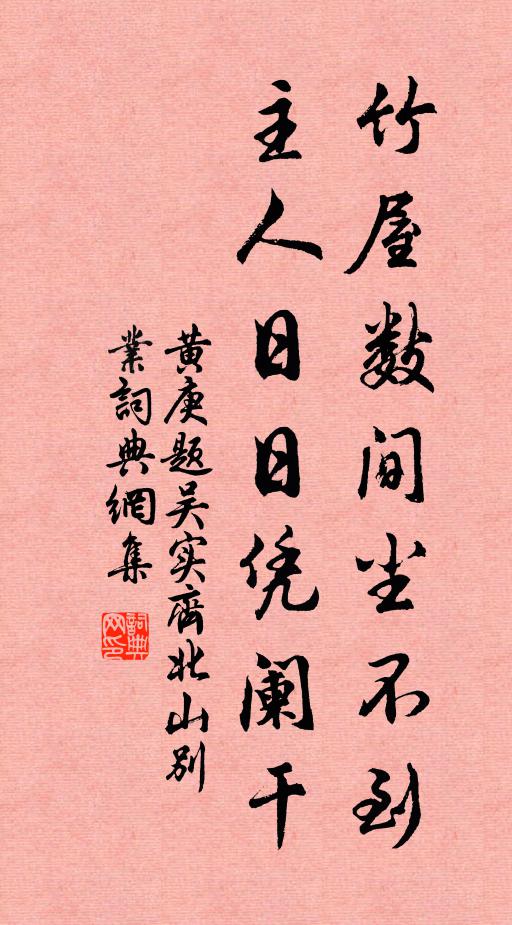 竹屋数间尘不到
主人日日凭阑干
黄庚题吴实齋北山别
業詞典網集
詞典网印